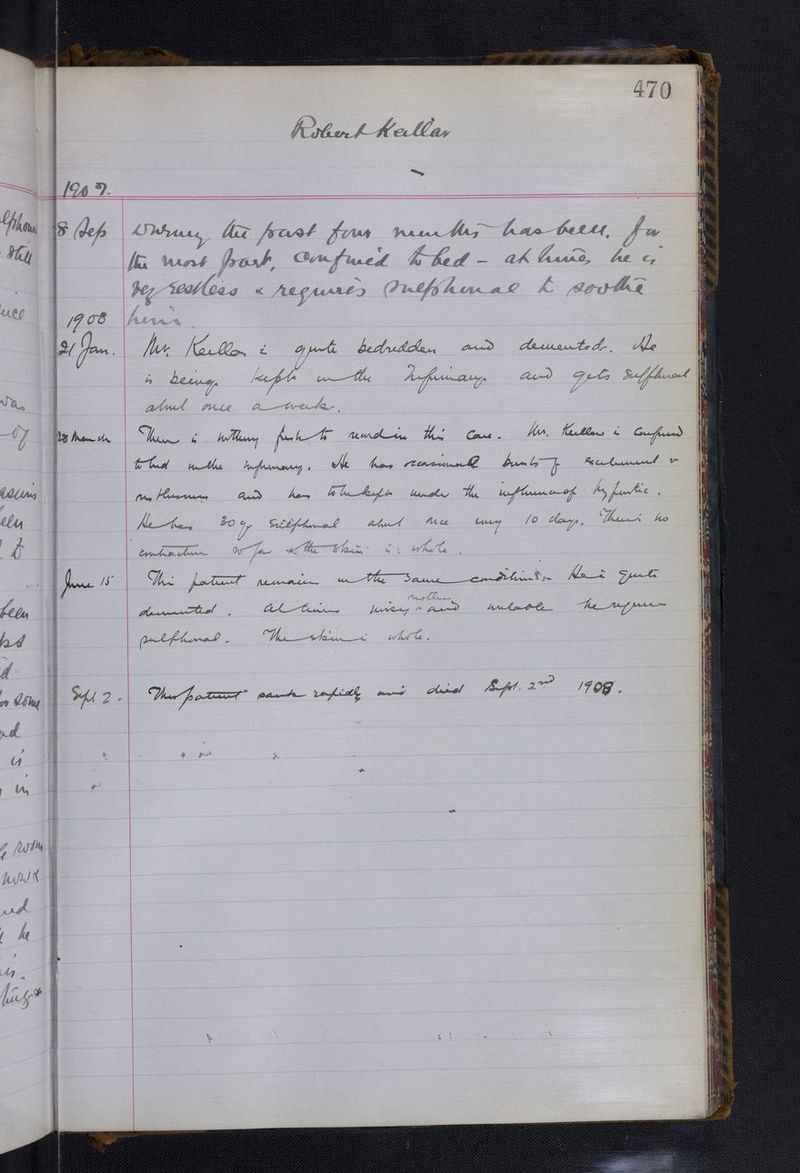 470
Robert Keillar
1907.
8 Sep During the past four months has been, for
the most part, confined to bed – at times he is
very restless & requires sulphonal to soothe
him.
1908
21 Jan. Mr. Keillar is quite bedridden and demented. He
is being kept in the Infirmary and gets sulphonal
about once a week.
28 March There is nothing fresh to record in this case. Mr. Keillar is confined
to bed in the infirmary. He has occasional bursts of excitement &
restlessness and has to be kept under the influence of hypnotic.
He has 30 gr sulphonal about once every 10 days. There is no
contraction so far & the skin is whole.
June 15 This patient remains in the same condition. He is quite
demented. At times noisy restless and unstable he requires
sulphonal. The skin is whole.
Sept 2. This patient sank rapidly and died Sept. 2nd 1908.
still
was
of
been
to
been
d.
for some
is
in
room
now &
he